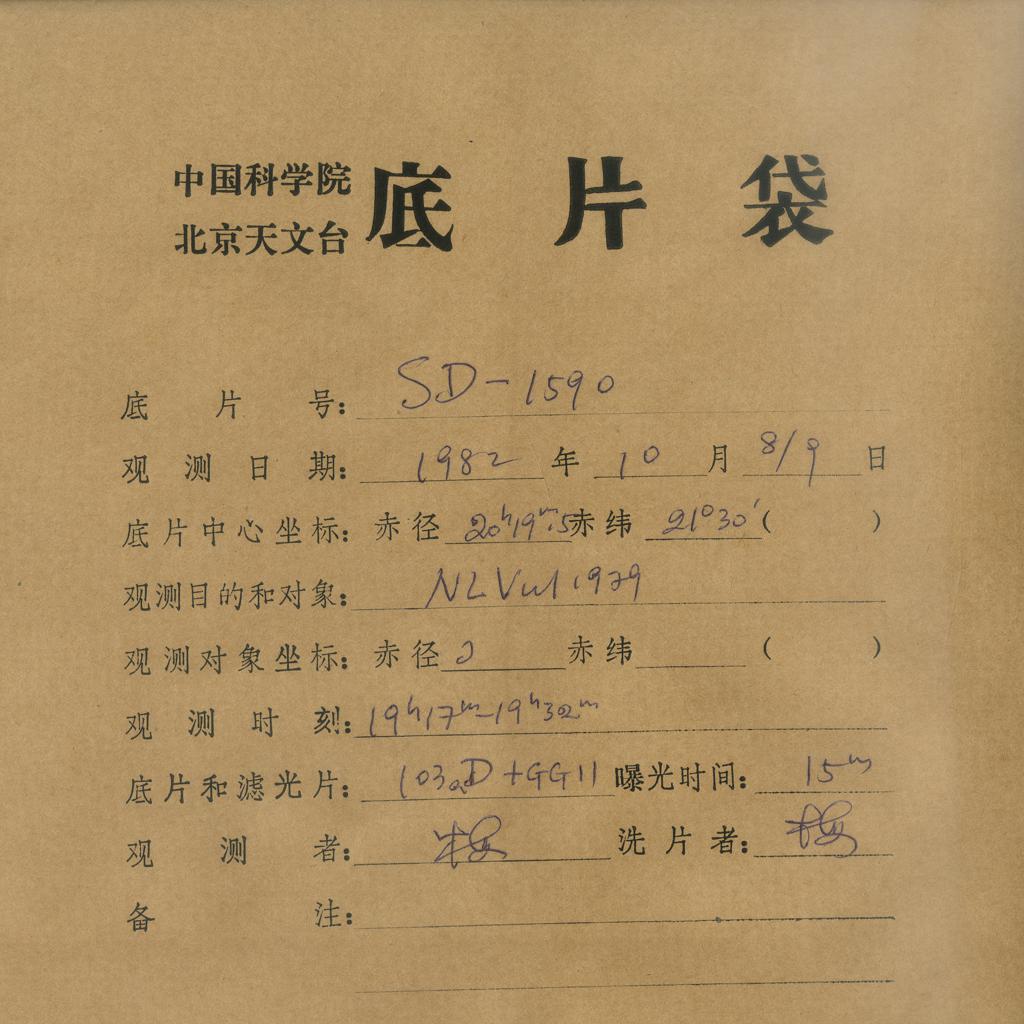 中国科学院
北京天文台
底片袋
底片号：SD-1590
观测日期：1982年10月8/9日
底片中心坐标：赤径20ʰ19ᵐ.5赤纬21°30′（ ）
观测目的和对象：NLVul 1979
观测对象坐标：赤径 赤纬 （ ）
观测时刻：19ʰ17ᵐ-19ʰ32ᵐ
底片和滤光片：103aD+GG11 曝光时间：15ᵐ
观测者：梅 洗片者：梅
备注：